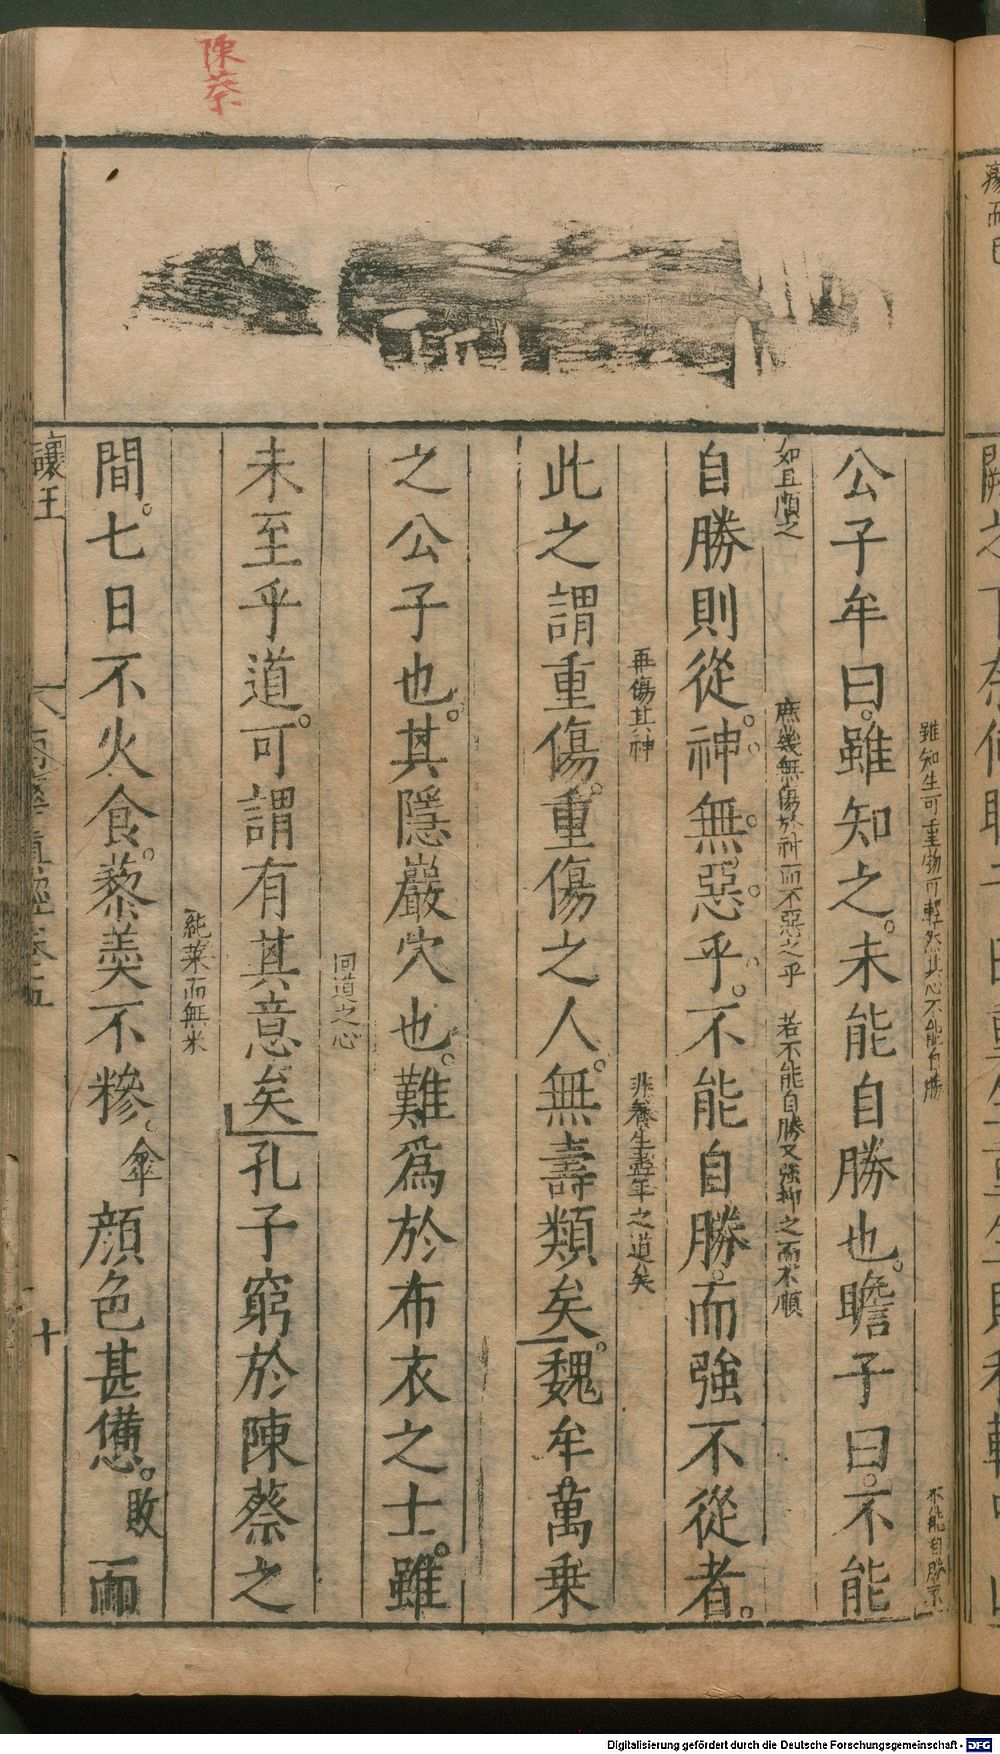 陳蔡
雖知生可重物可輕然其心不能自勝
不能自勝不
公子牟曰。雖知之。未能自勝也。瞻子曰。不能
如且順之
庶幾無傷於神而不惡之乎
若不能自勝又強抑之而不順
自勝則從。神無惡乎。不能自勝。而強不從者。
再傷其神
非養生盡年之道矣
此之謂重傷。重傷之人。無壽類矣。魏牟萬乗
之公子也。其隱巖穴也。難爲於布衣之士。雖
同道之心
未至乎道。可謂有其意矣孔子窮於陳蔡之
純菜而無米
間。七日不火食。藜羮不糝。傘顔色甚憊。敗而
讓王
十
Digitalisierung gefördert durch die Deutsche Forschungsgemeinschaft - DFG